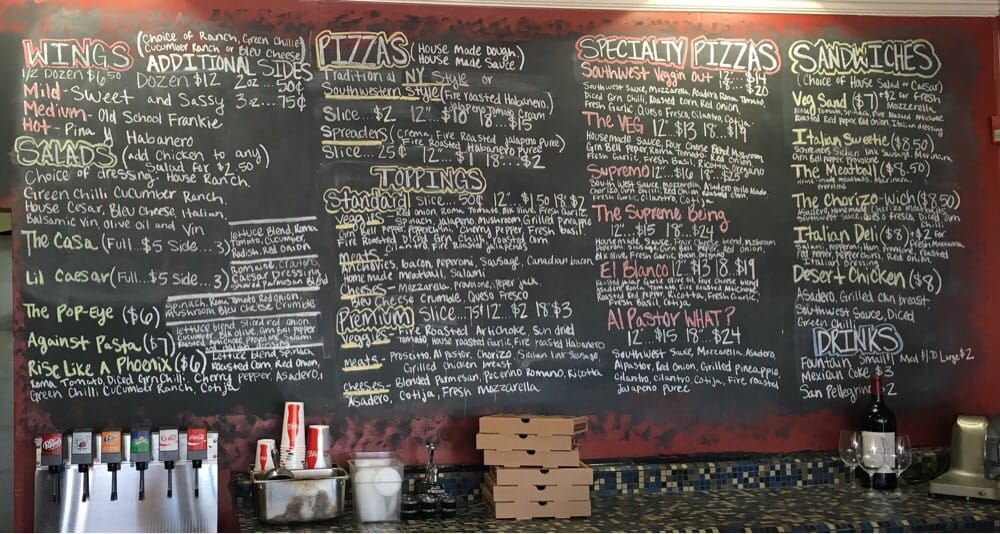 WINGS
(Choice of Ranch, Green Chilie
Cucumber Ranch or Bleu Cheese)
ADDITIONAL SIDES
1/2 DOZEN $6.50 DOZEN $12 2oz... 50¢
Mild - Sweet and Sassy 3oz... 75¢
Medium - Old School Frankie
Hot - Pina y Habanero
SALADS (add Chicken to any)
Salad for $2.50
Choice of dressing: House Ranch,
Green Chilli Cucumber Ranch,
House Cesar, Bleu Cheese, Italian,
Balsamic Vin, Olive oil and Vin
The Casa (Full..$5 Side...3)
Lettuce Blend, Roma
Tomato, Cucumber,
Radish, Red Onion
Lil Caesar (Full...$5 Side...3)
Romaine, Crutons,
Caesar Dressing
Shaved Parmesan Blend
The Pop-Eye ($6)
Spinach, Roma Tomato, Red Onion,
Mushroom, Bleu Cheese Crumble
Against Pasta ($7)
Lettuce blend, Sliced red onion
Cucumber, Blk Olive, Grn Bell Pepper
Rise Like A Phoenix ($6)
Lettuce Blend, Spinach,
Roasted Corn, Red Onion,
Roma Tomato, Diced Grn Chili, Cherry Pepper, Asadero,
Green Chilli Cucumber Ranch, Cotija
PIZZAS
(House Made Dough)
(House Made Sauce)
Traditional NY Style or
Southwestern Style (Fire roasted Habanero,
Tomato Cream
Slice... $2 12"... $10 18"... $15
Spreaders (Crema, Fire Roasted Jalapeno Puree)
Fire Roasted Habanero Puree
Slice... 25¢ 12"... $1 18"... $2
TOPPINGS
Standard Slice... 50¢ 12"... $1.50 18" $2
Veggies- Red Onion, Roma Tomato, Blk Olive, Fresh Garlic,
Spinach, Jalapeno, Mushroom, Grilled Pineapple,
Bell Pepper, Pepperchini, Cherry Pepper, Fresh basil,
Fire Roasted Diced Grn Chili, roasted corn
Cilantro, Fire Roasted Jalapenos
Meats-
Anchovies, bacon, peperoni, Sausage, Canadian bacon,
home made meatball, Salami
Cheeses- Mozzarella, Provolone, Peper Jack,
Bleu Cheese Crumble, Queso Fresco
Premium Slice... 75¢ 12"... $2 18" $3
Veggies- Fire Roasted Artichoke, Sun dried
Tomato, House roasted Garlic, Fire Roasted Habanero
meats- Proscitto, Al Pastor, Chorizo, Sicilian Link Sausage,
Grilled Chicken breast
cheeses- Blended Parmesan, Pecorino Romano, Ricotta
Asadero, Cotija, Fresh Mozzarella
SPECIALTY PIZZAS
Southwest Veggin Out 12"... $14
18"... $20
Southwest Sauce, Mozzarella, Asadero, Roma Tomato,
Diced Grn Chili, Roasted Corn, Red Onion,
Fresh Garlic, Queso Fresco, Cilantro, Cotija
The VEG 12"... $13 18"... $19
Housemade Sauce, Four Cheese Blend, Mushroom
Grn Bell Pepper, Roma Tomato, Red Onion
Fresh Garlic, Fresh Basil, Ricotta, Oregano
Supremo 12"... $16 18"... $25
South West Sauce, Mozzarella, Asadero, Pollo Asado,
Chorizo, Grn Chilli, Red Onion
Fresh Garlic, Cilantro, Cotija
The Supreme Being
12"... $15 18"... $24
Housemade Sauce, Four Cheese blend, Mushroom
Blk Olive, Fresh Garlic, Basil, Oregano
El Blanco 12"... $13 18"... $19
Roasted Red Pepper, Ricotta, Fresh Garlic,
Fresh Basil, Cotija
Al Pastor WHAT?
12"... $15 18"... $24
Southwest Sauce, Mozzarella, Asadero
Al Pastor, Red Onion, Grilled Pineapple,
Cilantro, Cilantro, Cotija, Fire roasted
Jalapeno Puree
SANDWICHES
(Choice of House Salad or Caesar)
Veg Sand ($7) $2 for Fresh
Mozzarella
Roasted Red Peper, Red Onion, Italian dressing
Italian Swethe ($8.50)
Grn Bell Peper, Provolone
The Meatball ($8.50)
Home-made meatballs, Marinara,
Provolone
The Chorizo-Wich ($8.50)
Italian Deli ($8) +$2 for
Fresh Mozzarella
Italian Dressing
Desert Chicken ($8)
Asadero, Grilled Ckn breast
Southwest Sauce, Diced
Green Chili
DRINKS
Fountain Small $1 Med $1.70 Large $2
Mexican Coke $3
San Pellegrino $2